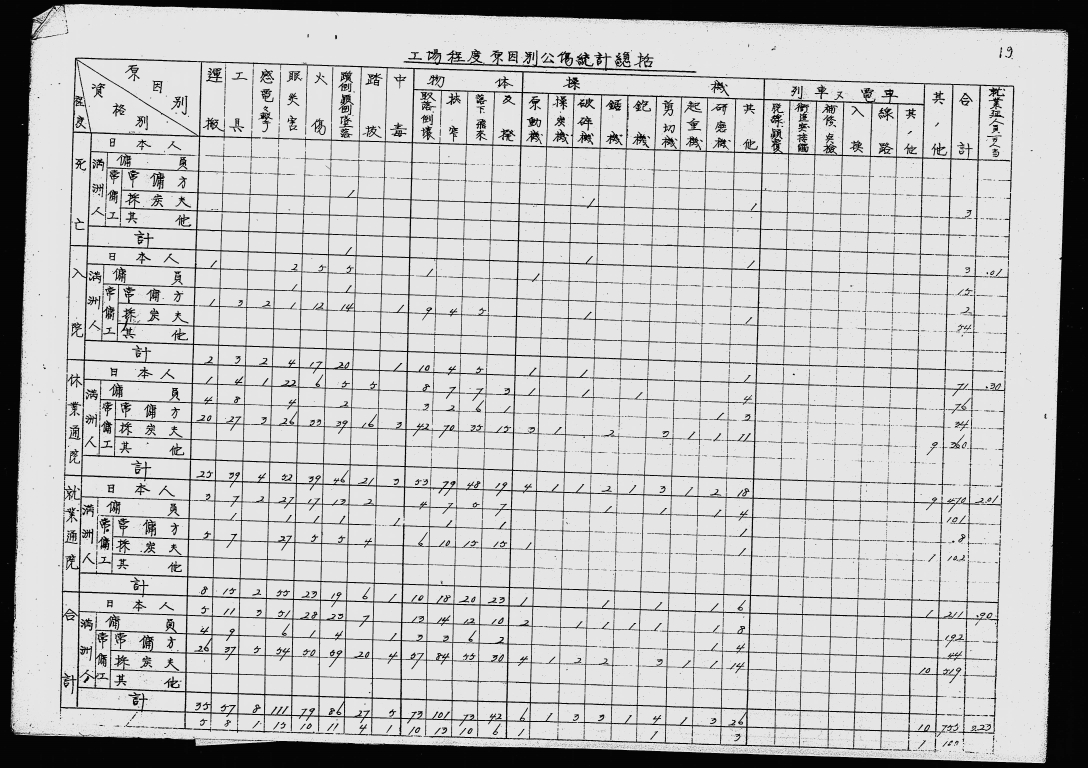 19
工場程度原因別公傷統計總括
原因別 資格別 程度 運搬 工具 感電々撃 眼災害 火傷 中毒 物体 操機 列車又電車 其ノ他 合計
取落倒壊 挟窄 落下飛来 原動機 採炭機 破砕機 鋸機 鉋機 剪切機 起重機 研磨機 其他 入換 線路 其ノ他
死亡 日本人
満洲人 傭員
常傭工 常傭方
採炭夫 1 1 1 3
其他
計 1 1 1 3 .01
入院 日本人 1 2 5 5 1 1 15
満洲人 傭員 1 1 2
常傭工 常傭方 1 3 2 1 12 14 1 9 4 5 1 1 54
採炭夫
其他
計 2 3 2 4 17 20 1 10 4 5 1 1 1 71 .30
休業通院 日本人 1 4 1 22 6 5 5 8 7 7 3 1 1 1 4 76
満洲人 傭員 4 8 4 2 3 2 6 1 1 3 34
常傭工 常傭方 20 27 3 26 33 39 16 3 42 70 35 15 3 1 2 3 1 1 11 9 360
採炭夫
其他
計 25 39 4 52 39 46 21 3 53 79 48 19 4 1 1 2 1 3 1 2 18 9 470 2.01
就業通院 日本人 3 7 2 27 17 13 2 4 7 5 7 1 1 1 4 101
満洲人 傭員 1 1 1 1 1 1 1 1 8
常傭工 常傭方 5 7 27 5 5 4 6 10 15 15 1 1 1 102
採炭夫
其他
計 8 15 2 55 23 19 6 1 10 18 20 23 1 1 1 1 6 1 211 .90
合計 日本人 5 11 3 51 28 23 7 13 14 12 10 2 1 1 1 1 1 8 192
満洲人 傭員 4 9 6 1 4 1 3 3 6 2 1 4 44
常傭工 常傭方 26 37 5 54 50 59 20 4 57 84 55 30 4 1 2 2 3 1 1 14 10 519
採炭夫
其他
計 35 57 8 111 79 86 27 5 73 101 73 42 6 1 3 3 1 4 1 3 26 10 755 3.23
5 8 1 15 10 11 4 1 10 13 10 6 1 1 3 1 100